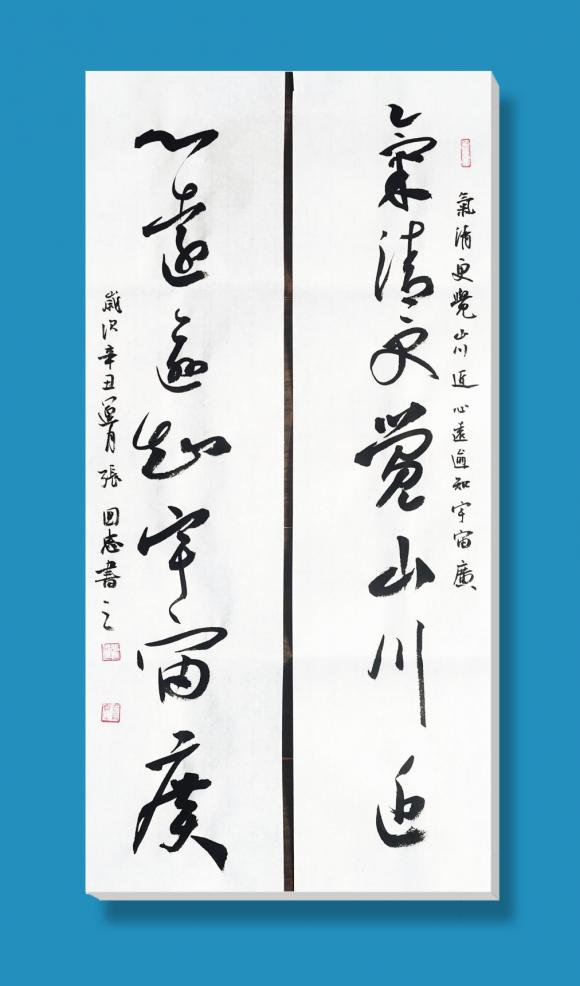 氣清更覺山川近心遠逾知宇宙廣
氣清更覺山川近
心遠逾知宇宙廣
歲次辛丑蓮月張国志書之